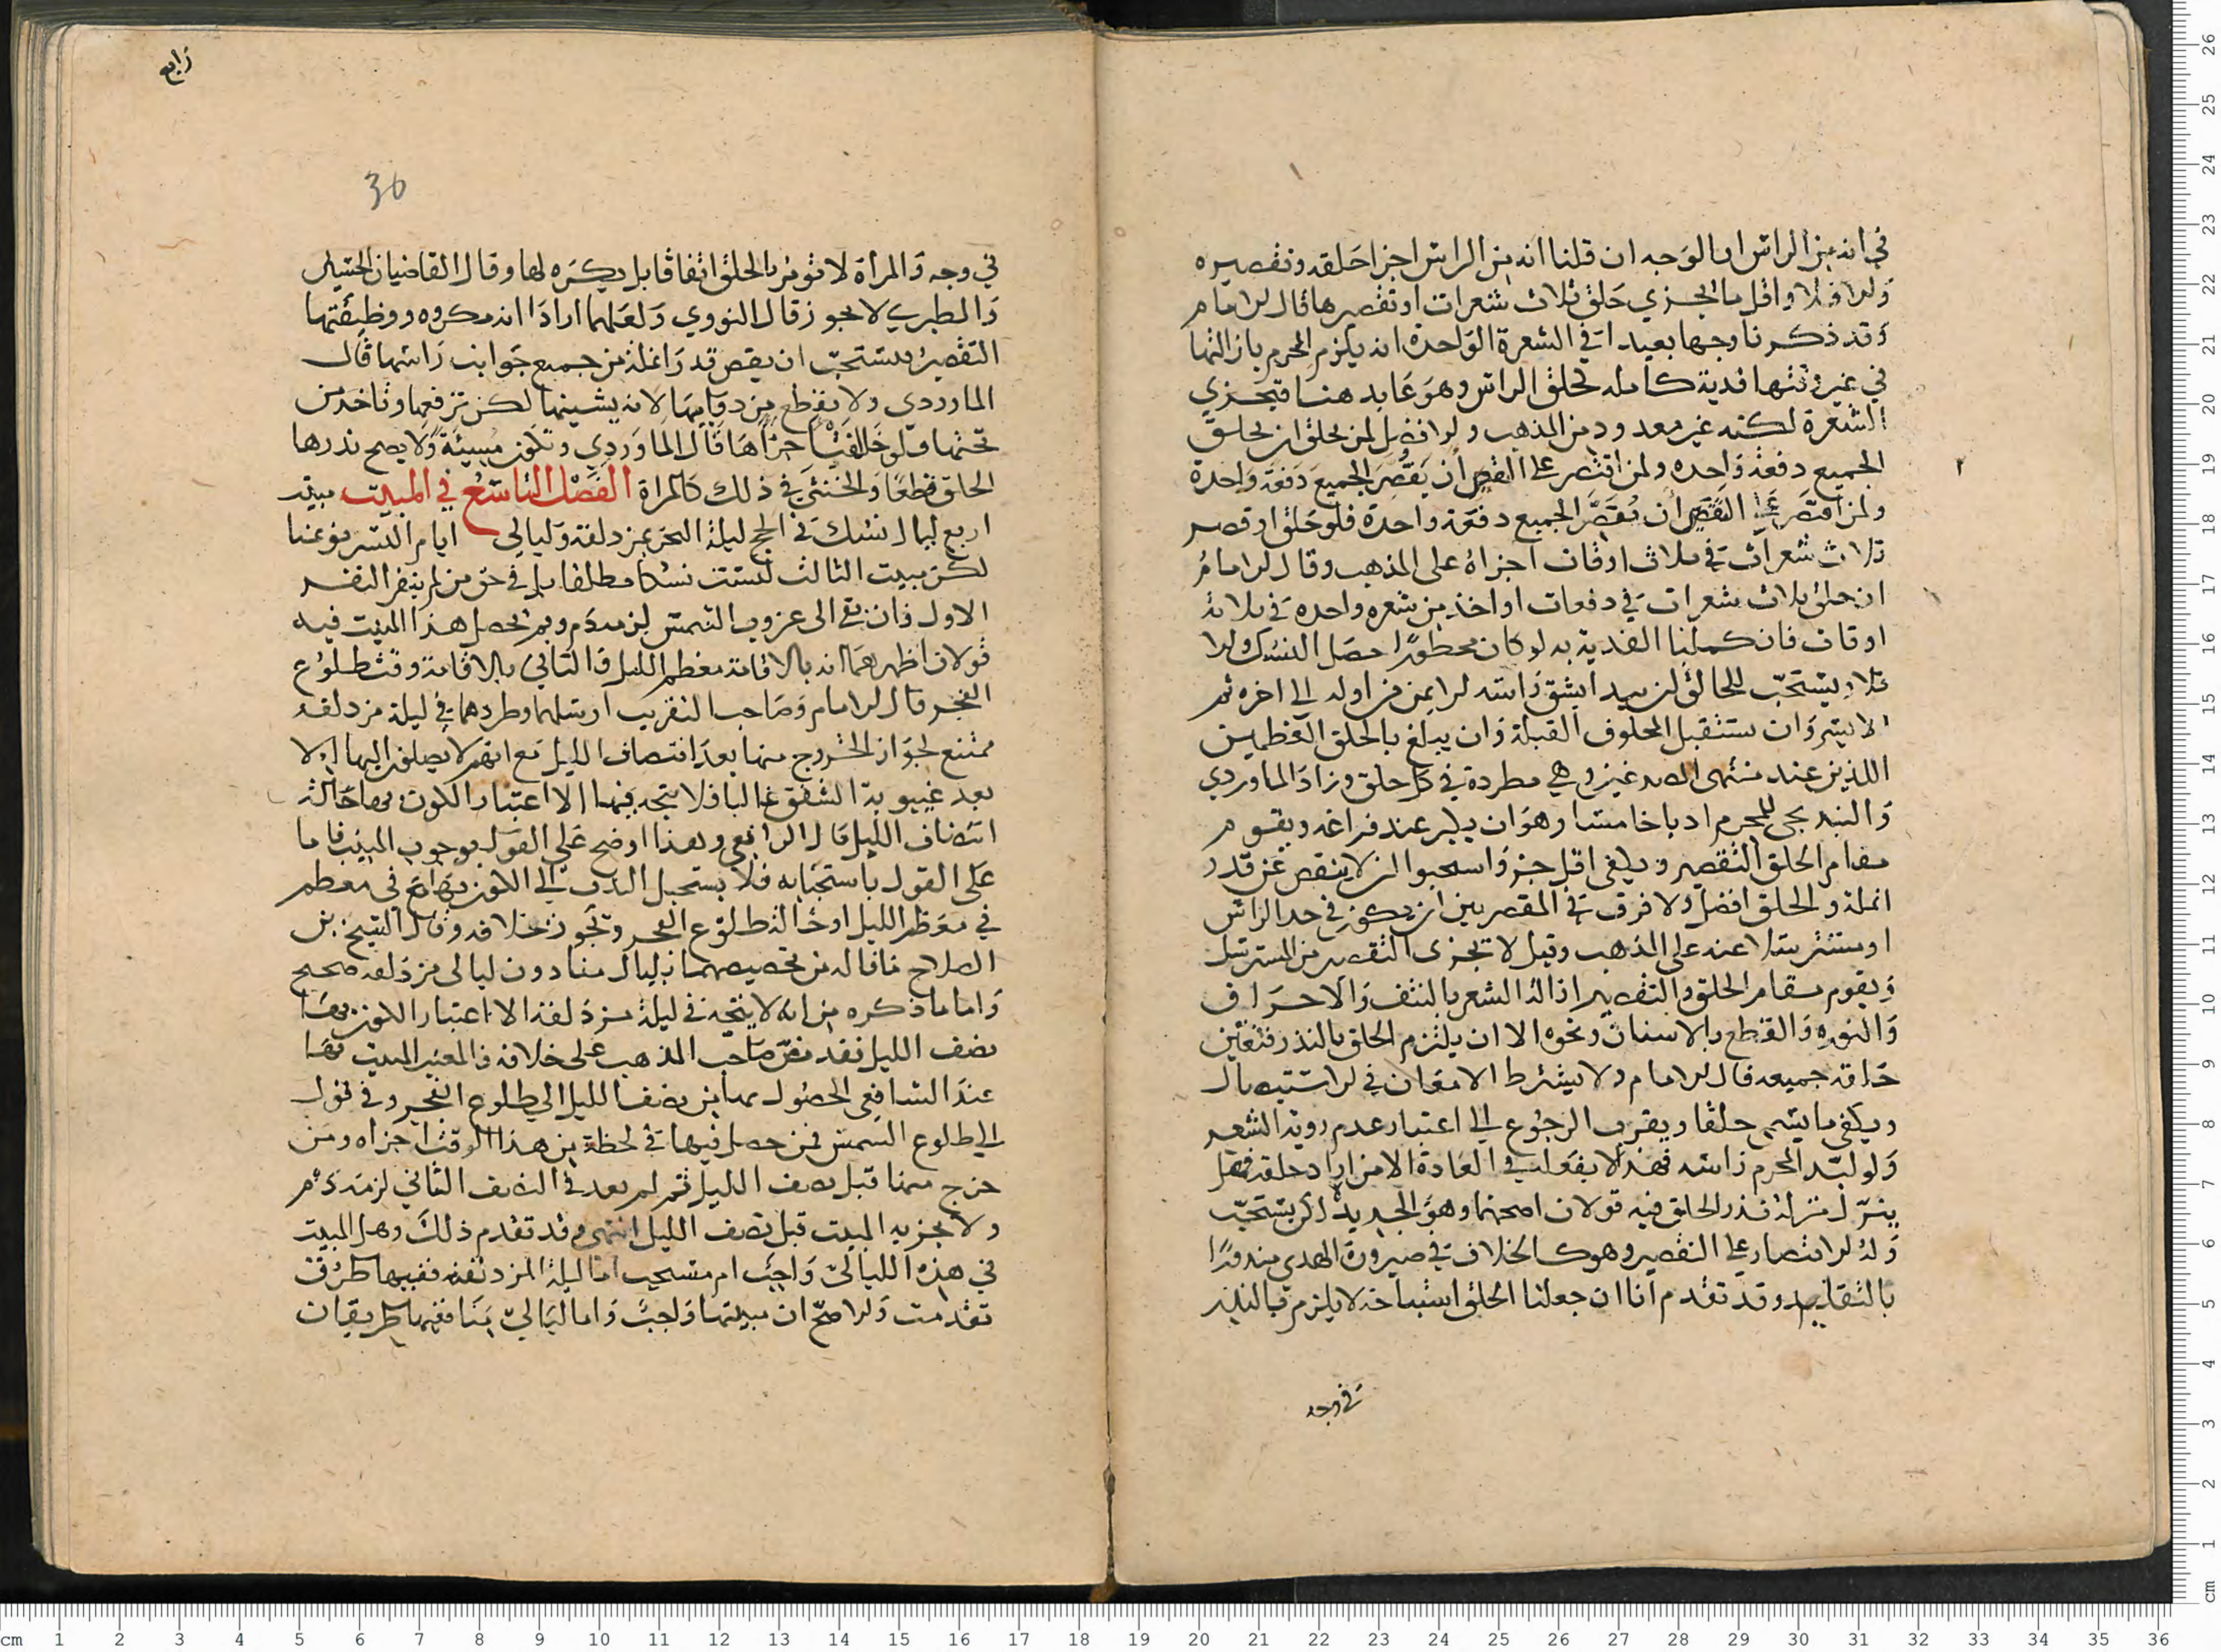 في انه من الراس او الوجه ان قلنا انه من الراس اجزا حلقه وتقصيره
والا فلا واقل ما يجزي حلق ثلاث شعرات او تقصيرها قال الامام
وقد ذكرنا وجها بعيدا في الشعرة الواحدة انه يلزم المحرم بازالتها
في غير وقتها فدية كاملة كحلق الراس وهو عايد هنا فتجزي
الشعرة لكنه غير معدود من المذهب والافضل لمن يحلق ان يحلق
الجميع دفعة واحده ولمن اقتصر على القص ان يقصر الجميع دفعة واحدة
ولمن اقتصر على القص ان يقصر الجميع دفعة واحدة فلو حلق او قصر
ثلاث شعرات في ثلاث اوقات اجزاه على المذهب وقال الامام
ان حلق ثلاث شعرات في دفعات او اخذ من شعره واحده في ثلاثة
اوقات فان كملنا الفدية به لو كان محظورا حصل النسك والا
فلا ويستحب للحالق ان يبدا بشق راسه الايمن من اوله الى اخره ثم
الايسر وان يستقبل المحلوق القبلة وان يبلغ بالحلق العظمين
اللذين عند منتهى الصدغين وهي مطردة في كل حلق وزاد الماوردي
للمحرم ادبا خامسا وهو ان يكبر عند فراغه ويقوم
مقام الحلق التقصير ويكفي اقل جز واستحبوا ان لا ينقص عن قدر
انملة والحلق افضل ولا فرق في المقصر بين ان يكون في حد الراس
او مسترسلا عنه على المذهب وقيل لا تجزي التقصير من المسترسل
ويقوم مقام الحلق والتقصير ازالة الشعر بالنتف والاحراق
والنوره والقطع بالاسنان ونحوه الا ان يلتزم الحلق بالنذر فتعين
حلق جميعه قال الامام ولا يشترط الامعان في الاستيصال
ويكفي ما يسمى حلقا ويقرب الرجوع الى اعتبار عدم روية الشعر
ولو لبد المحرم راسه فهذا لا يفعله في العادة الا من اراد حلقه فهل
ينزل منزلة نذر الحلق فيه قولان اصحهما وهو الجديد لا لكن يستحب
وله الاقتصار على التقصير وهو كالخلاف في صيرورة الهدي منذورا
بالتقليد وقد تقدم انا ان جعلنا الحلق استباحة لا يلزم بالنذر
في وجه
رابع
30
في وجه والمرأة لا تؤمر بالحلق اتفاقا بل يكره لها وقال القاضيان الحسين
والطبري لا يجوز قال النووي ولعلهما ارادا انه مكروه ووظيفتها
التقصير ويستحب ان يقص قدر انملة من جميع جوانب راسها قال
الماوردي ولا يقطع من دوايبها لانه يشينها لكن ترفعها وتاخذ من
تحتها فلو خالفت اجزاها قال الماوردي وتكون مسيئة ولا يصح نذرها
الحلق قطعا والخنثى في ذلك كالمراة الفصل التاسع في المبيت مبيت
اربع ليال نسك في الحج ليلة النحر بمزدلفة وليالي ايام التشريق بمنا
لكن مبيت الثالث ليست نسكا مطلقا بل في حق من لم ينفر النفر
الاول فان بقي الى غروب الشمس لزمه دم وبم يحصل هذا المبيت فيه
قولان اظهرهما انه بالاقامة معظم الليل والثاني بالاقامة وقت طلوع
الفجر قال الامام وصاحب التقريب ارسلهما وطردهما في ليلة مزدلفه
ممتنع لجواز الخروج منها بعد انتصاف الليل مع انهم لا يصلون اليها الا
بعد غيبوبة الشفق غالبا فلا يتجه فيها الا اعتبار الكون بها حالة
انتصاف الليل قال الرافعي وهذا اوضح على القول بوجوب المبيت فاما
على القول باستحبابه فلا يستحيل الندب الى الكون بها في معظم
في معظم الليل او حالة طلوع الفجر وتجوز خلافه وقال الشيخ بن
الصلاح ما قاله من تخصيصهما بليال منا دون ليالي مزدلفه صحيح
واما ما ذكره من انه لا يتجه في ليلة مزدلفة الا اعتبار الكون بها
نصف الليل فقد نص صاحب المذهب على خلافه فالمعتبر المبيت بها
عند الشافعي الحصول بها من نصف الليل الى طلوع الفجر وفي قول
الى طلوع الشمس فمن حصل فيها في لحظة من هذا الوقت اجزاه ومن
خرج منها قبل نصف الليل ثم لم يعد في النصف الثاني لزمه دم
ولا يجزيه المبيت قبل نصف الليل انتهى وقد تقدم ذلك وهل المبيت
في هذه الليالي واجب ام مستحب اما ليلة المزدلفه ففيها طرق
تقدمت والاصح ان مبيتها واجب واما ليالي منا ففيها طريقان